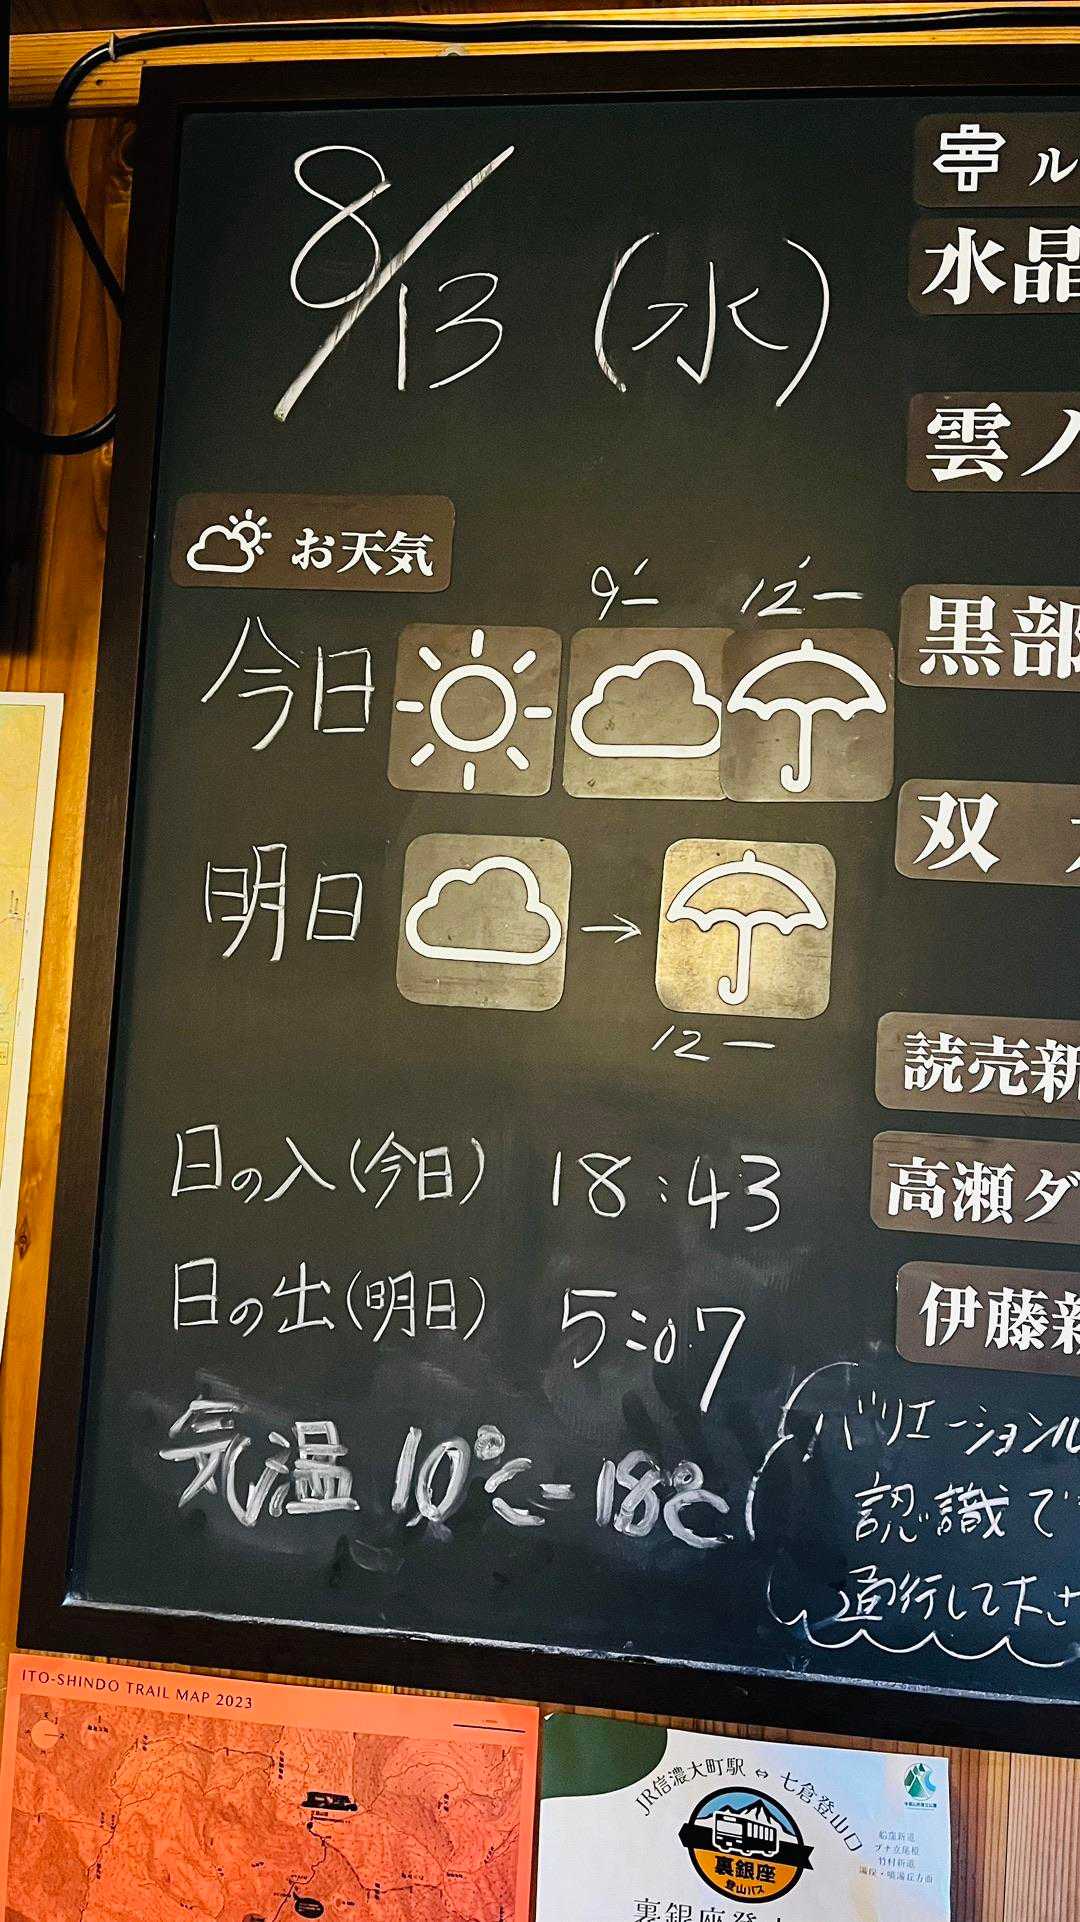 8/13 (水)
お天気
9'ー 12'ー
今日
明日 →
12ー
日の入(今日) 18:43
日の出(明日) 5:07
気温 10℃-18℃
ル
水晶
雲ノ
黒部
双
読売新
高瀬ダ
伊藤新
バリエーションル
認識で
通行して下さ
ITO-SHINDO TRAIL MAP 2023
JR信濃大町駅 ⇔ 七倉登山口
裏銀座
登山バス
船窪新道
ブナ立尾根
竹村新道
湯俣・噴湯丘方面
裏銀座登山